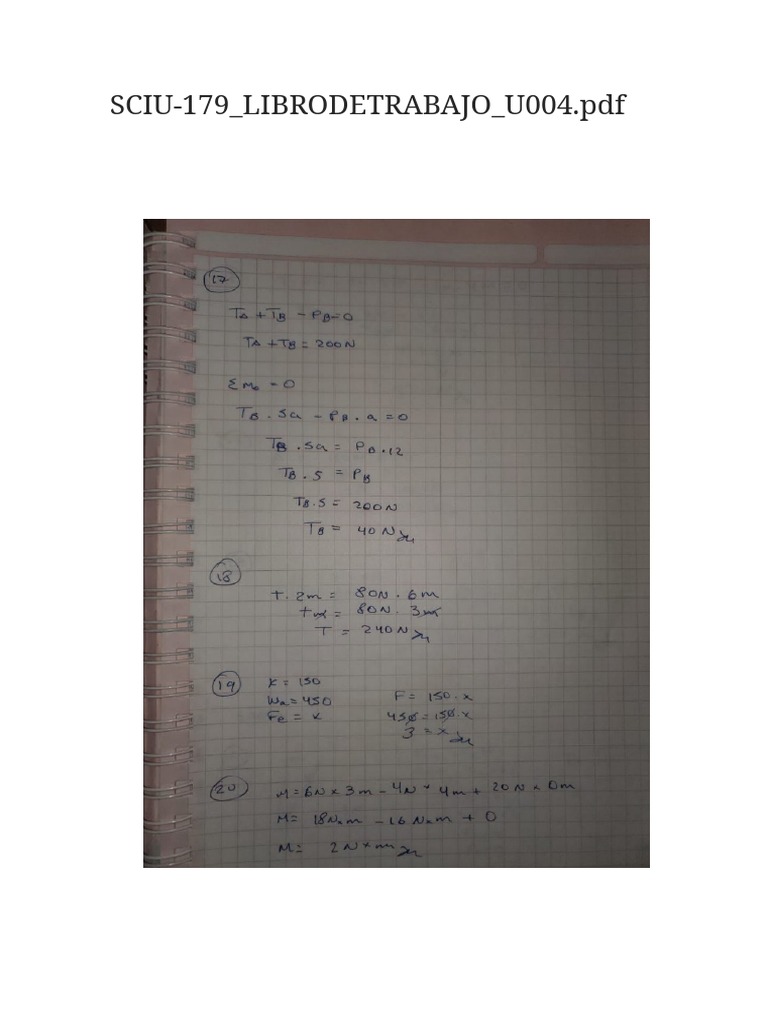 SCIU-179_LIBRODETRABAJO_U004.pdf
17
TA + TB - PB=0
TA + TB = 200N
Σmo = 0
TB . 5a - PB . a = 0
TB . 5a = PB . 12
TB . 5 = PB
TB . 5 = 200N
TB = 40 N
18
t . 2m = 80N . 6m
tm = 80N . 3m
T = 240N
19
K = 150
Wa = 450
F = 150 . x
Fe = K
450 = 150 . x
3 = x
20
M = 6N x 3m - 4N * 4m + 20N x 0m
M = 18Nxm - 16Nxm + 0
M = 2Nxm